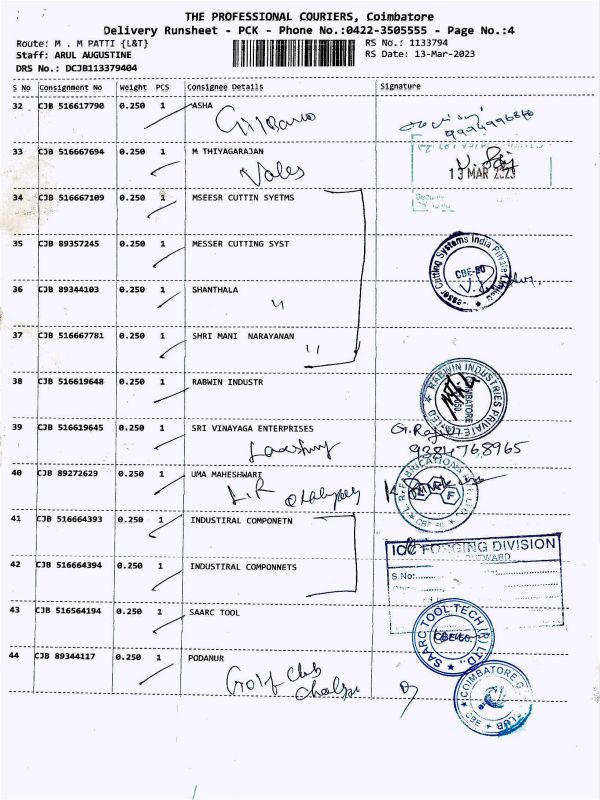 THE PROFESSIONAL COURIERS, Coimbatore
Delivery Runsheet - PCK - Phone No.:0422-3505555 - Page No.:4
Route: M . M PATTI {L&T} RS No.: 1133794
Staff: ARUL AUGUSTINE RS Date: 13-Mar-2023
DRS No.: DCJB113379404
S No Consignment No Weight PCS Consignee Details Signature
32 CJB 516617790 0.250 1 ASHA
33 CJB 516667694 0.250 1 M THIYAGARAJAN
Vales
13 MAR 2023
34 CJB 516667109 0.250 1 MSEESR CUTTIN SYETMS
35 CJB 89357245 0.250 1 MESSER CUTTING SYST
Messer Cutting Systems India Private Limited
CBE-60
36 CJB 89344103 0.250 1 SHANTHALA
37 CJB 516667781 0.250 1 SHRI MANI NARAYANAN
38 CJB 516619648 0.250 1 RABWIN INDUSTR
RABWIN INDUSTRIES PRIVATE LIMITED
39 CJB 516619645 0.250 1 SRI VINAYAGA ENTERPRISES
9384768965
40 CJB 89272629 0.250 1 UMA MAHESHWARI
L.R
41 CJB 516664393 0.250 1 INDUSTIRAL COMPONETN
FORGING DIVISION
S.No:
42 CJB 516664394 0.250 1 INDUSTIRAL COMPONNETS
43 CJB 516564194 0.250 1 SAARC TOOL
SAARC TOOL TECH (P) LTD.,
44 CJB 89344117 0.250 1 PODANUR
Golf Club
COIMBATORE G
CBE